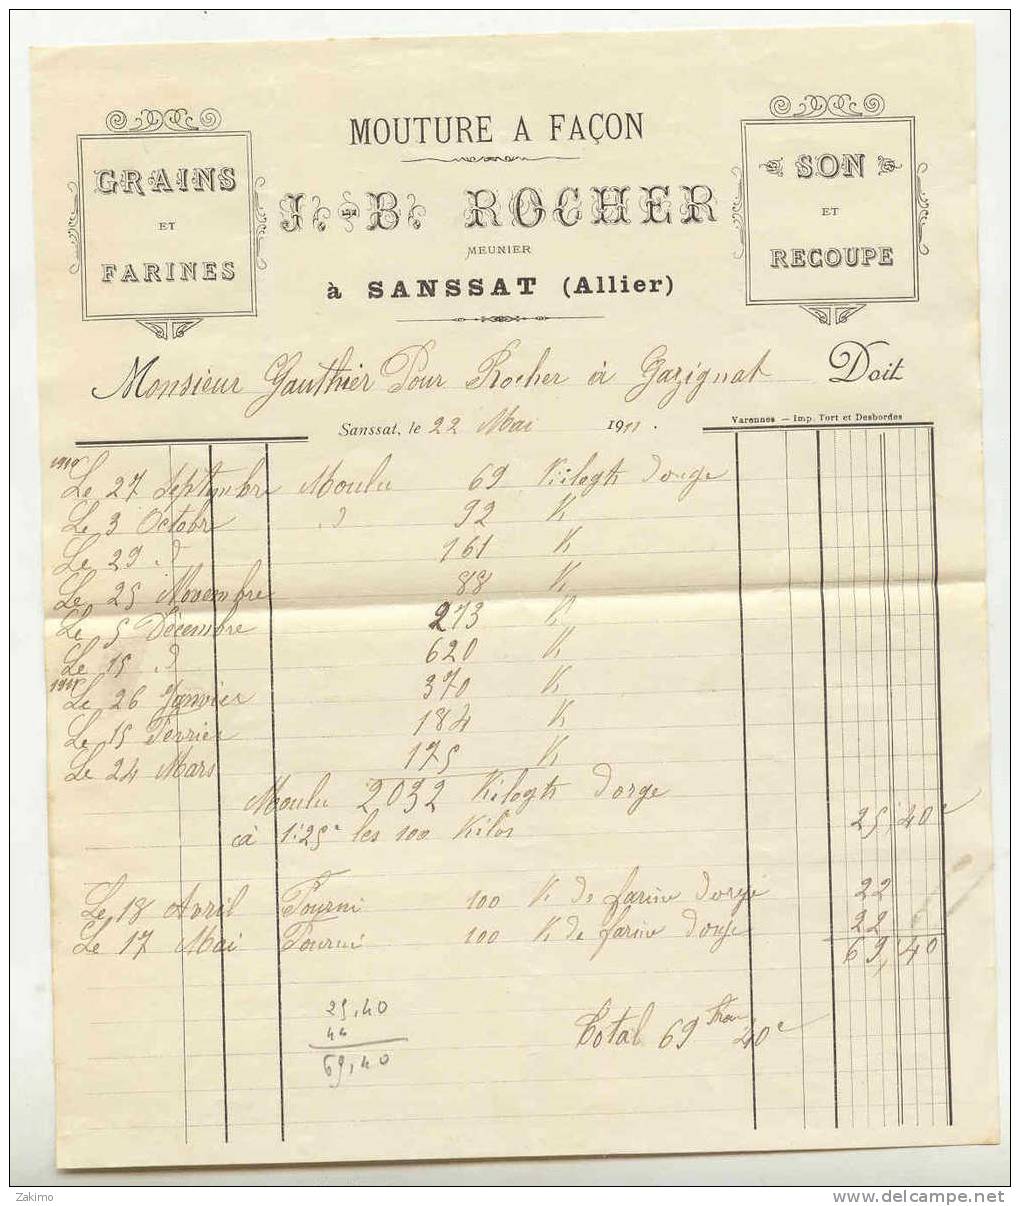 MOUTURE A FAÇON
GRAINS
ET
FARINES
J.-B. ROCHER
MEUNIER
à SANSSAT (Allier)
SON
ET
RECOUPE
Monsieur Gauthier Pour Rocher à Gazignat Doit
Varennes — Imp. Tort et Desbordes
Sanssat, le 22 Mai 1911.
1910
Le 27 Septembre Moulu 69 Kilogs dorge
Le 3 Octobre .d 92 K
Le 29 .d 161 K
Le 25 Novembre 88 K
Le 5 Décembre 273 K
Le 15 .d 620 K
1911
Le 26 Janvier 370 K
Le 15 Fevrier 184 K
Le 24 Mars 175 K
Moulu 2032 Kilogs dorge
à 1f25c les 100 Kilos 25,40c
Le 18 Avril Fourni 100 K de farine dorge 22
Le 17 Mai Fourni 100 K de farine dorge 22
69,40
25,40
44
69,40
Total 69 Fran 40c
Zakimo
www.delcampe.net